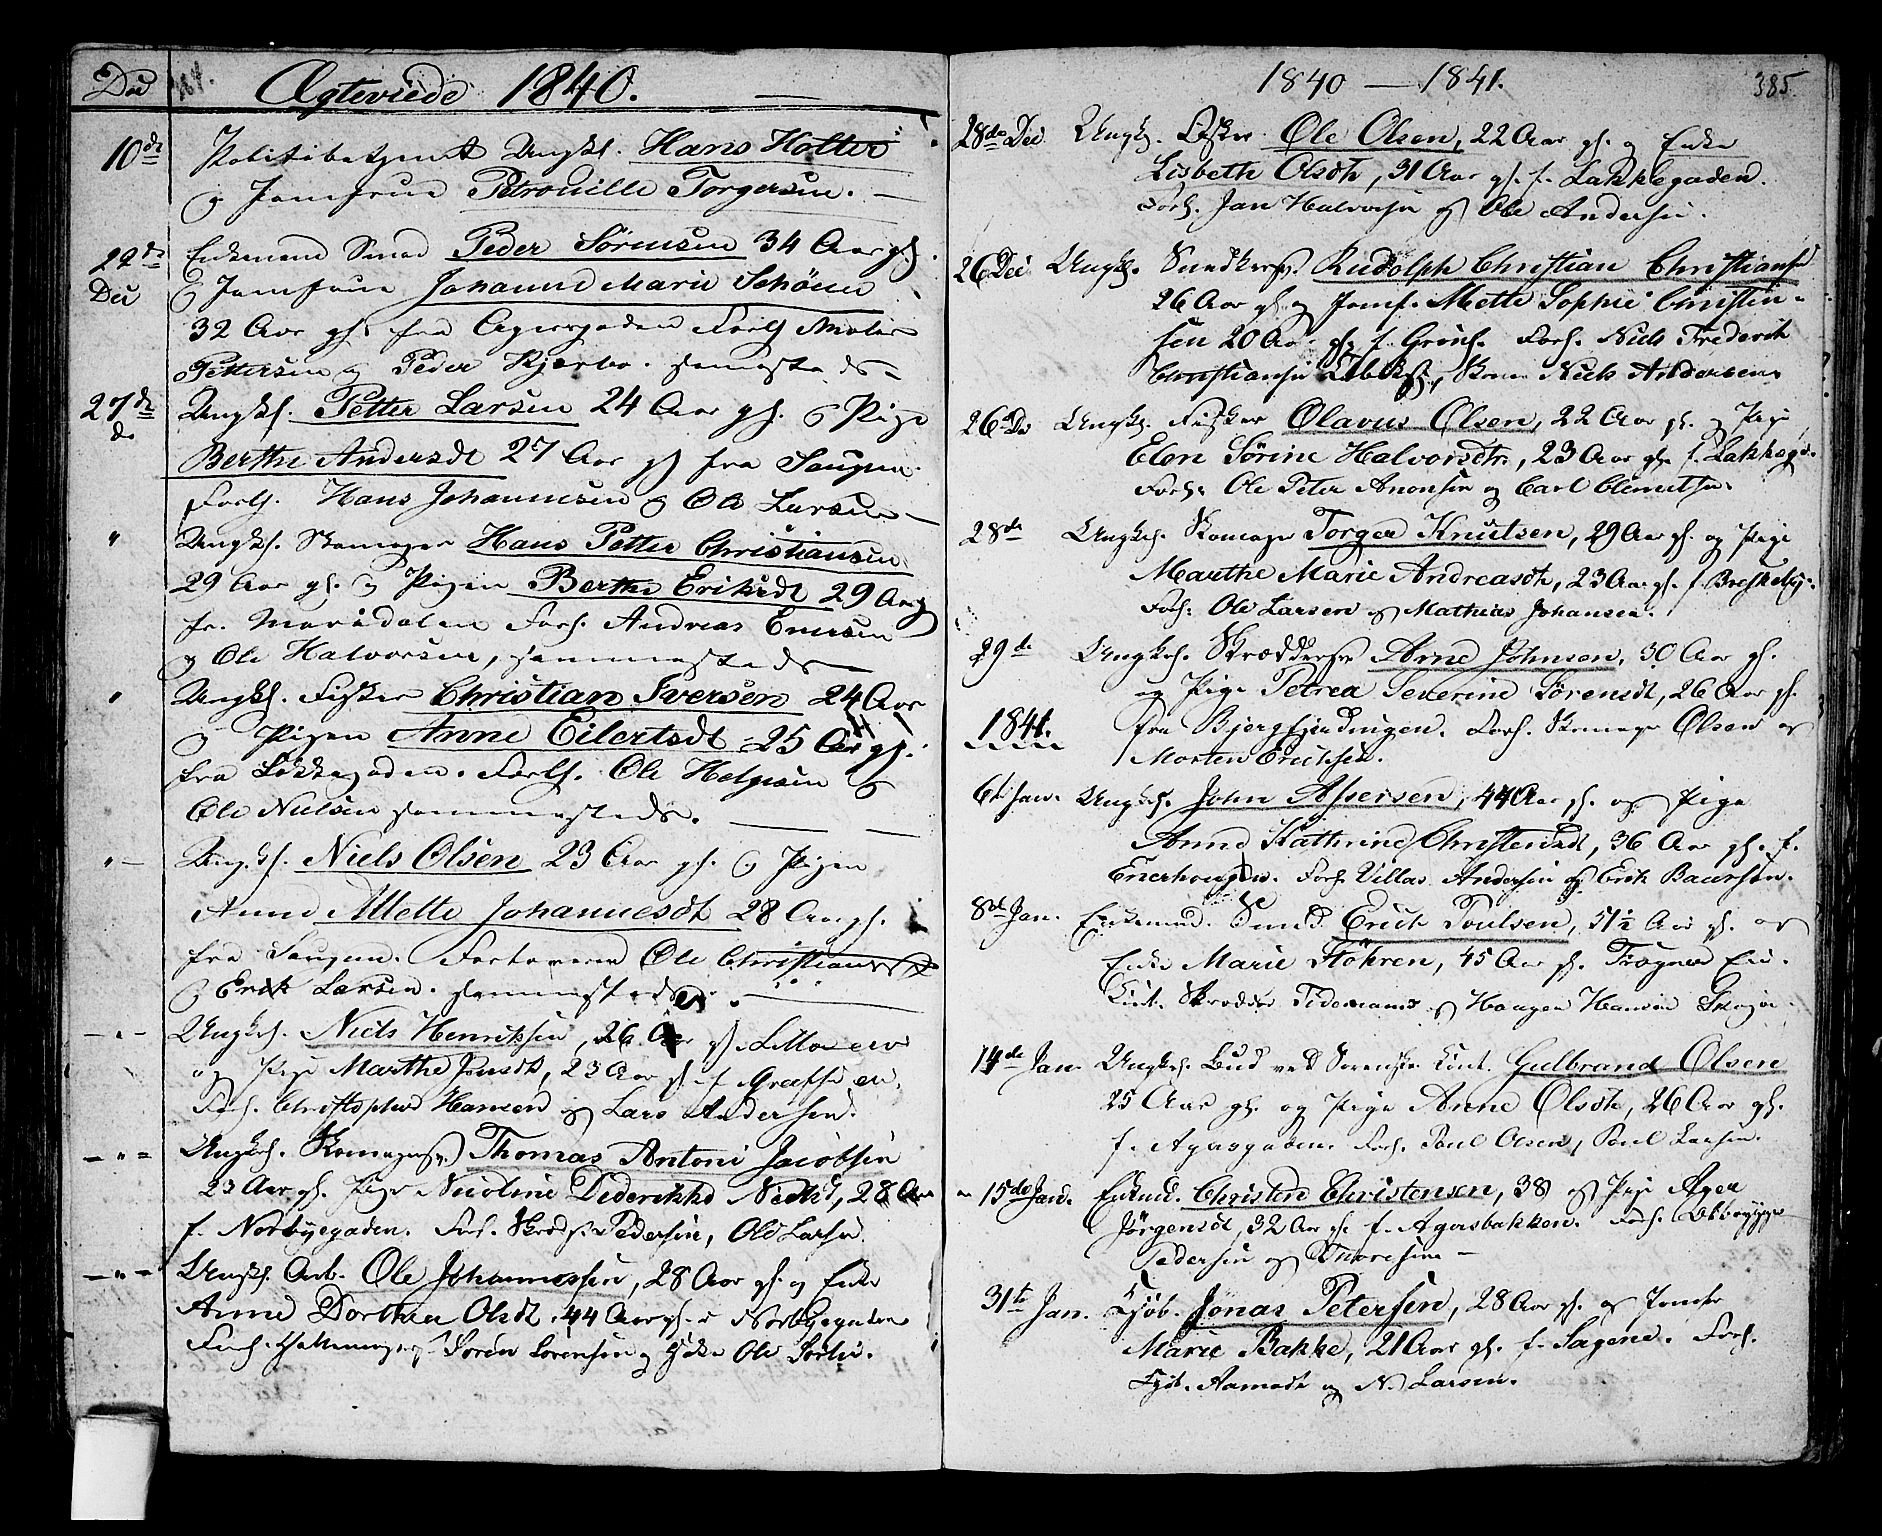 Dec
Ægteviede 1840.
10de Politibetjent Ungk. Hans Holter
og Jomfrue Petronille Torgersen.
29de Dec Enkemand Smed Peder Sörensen 34 Aar gl.
og Jomfrue Johanne Marie Schöün
32 Aar gl. fra Agersgaden Forl.
Pettersen og Peder sammesteds
27de d. Ungk. Petter Larsen 24 Aar gl. og Pige
Berthe Andersdt 27 Aar gl fra Saugen.
Forl. Hans Johannesen og Ole Larsen
" Ungk. Skomager Hans Petter Christiansen
29 Aar gl. og Pigen Berthe Eriksdt 29 Aar gl
fr. Maridalen Forl. Andreas Enersen
og Ole Halvorsen, sammesteds
" Ungk. Fisker Christian Iversen 24 Aar
og Pigen Anne Eilertsdt 25 Aar gl.
fra Lakkegaden. Forl. Ole Helgesen og
Ole Nielsen sammesteds.
" Ungk. Niels Olsen 23 Aar gl. og Pigen
Anne Mette Johannesdt 28 Aar gl.
fra Saugen. Forlovere Ole Christiansen
og Erik Larsen. sammesteds
" Ungk. Niels Henriksen, 26 Aar gl.
og Pige Marthe Jensdt, 23 Aar gl. f.
Forl. Christopher Hansen og Lars Andersen.
" Ungk. Skomagersv. Thomas Antoni Jacobsen
23 Aar gl. Pige Nicoline Dederikke Nielsd, 28 Aar
f. Norbyegaden. Forl. Skred. Pedersen, Ole Larsen.
" Ungk. Arb. Ole Johannessen, 28 Aar gl. og Enke
Anne Dorthea Olsdt, 44 Aar gl. Norbygaden
Forl. Sören Sörensen og Ole
1840 — 1841.
385.
28de Dec Ungk. Fisker Ole Olsen, 22 Aar gl. og Enke
Lisbeth Olsdt, 31 Aar gl. f. Lakkegaden.
Forl. Jan Halvorsen og Ole Andersen.
26 Dec Ungk. Snedkersv. Rudolph Christian Christiansen
26 Aar gl og Jomf. Mette Sophie Christian-
sen 20 Aar gl. f. Grönl. Forl. Niels Frederik
Christiansen Niels Andersen.
26 De Ungk. Fisker Olavus Olsen, 22 Aar gl. og Pige
Elen Sörine Halvorsdtr, 23 Aar gl. f. Lakkegd.
Forl. Ole Peter Anonsen og Carl Clemetsen.
28de Ungk. Skomager Torger Knutsen, 29 Aar gl. og Pige
Marthe Marie Andreasdt, 23 Aar gl. f. Breskeby.
Forl. Ole Larsen og Mathias Johansen.
29de Ungk. Skræddersv. Arne Johnsen, 30 Aar gl.
og Pige Petrea Severine Sörensdt, 26 Aar gl.
1841. fra Bjergfjerdingen. Forl. Skomager Olsen og
Morten Erichsen.
6te Jan. Ungk. John Assersen, 44 Aar gl. og Pige
Anne Kathrine Christensdt, 36 Aar gl. f.
Enerhougen. Forl. Villas Andersen og Erik Baarsen.
8de Jan. Enkemd. Smed Erich Poulsen, 51½ Aar gl. og
Enke Marie Höhren, 45 Aar gl.
Skrædder Tidemand og Haagen Hansen
14de Jan. Ungk. Bud ved Gulbrand Olsen
25 Aar gl. og Pige Anne Olsdt, 26 Aar gl.
f. Agersgaden Forl. Poul Olsen, Poul Larsen.
15de Jan. Enkmd. Christen Christensen, 38 og Pige Agea
Jörgensdt, 32 Aar gl. f. Agersbakken. Forl.
Pedersen og Thoresen
31te Jan. Kjöb. Jonas Petersen, 28 Aar gl. og Jomfr
Marie Bakke, 21 Aar gl. f. Sagene. Forl.
Kjöb. Aamodt og N. Larsen.